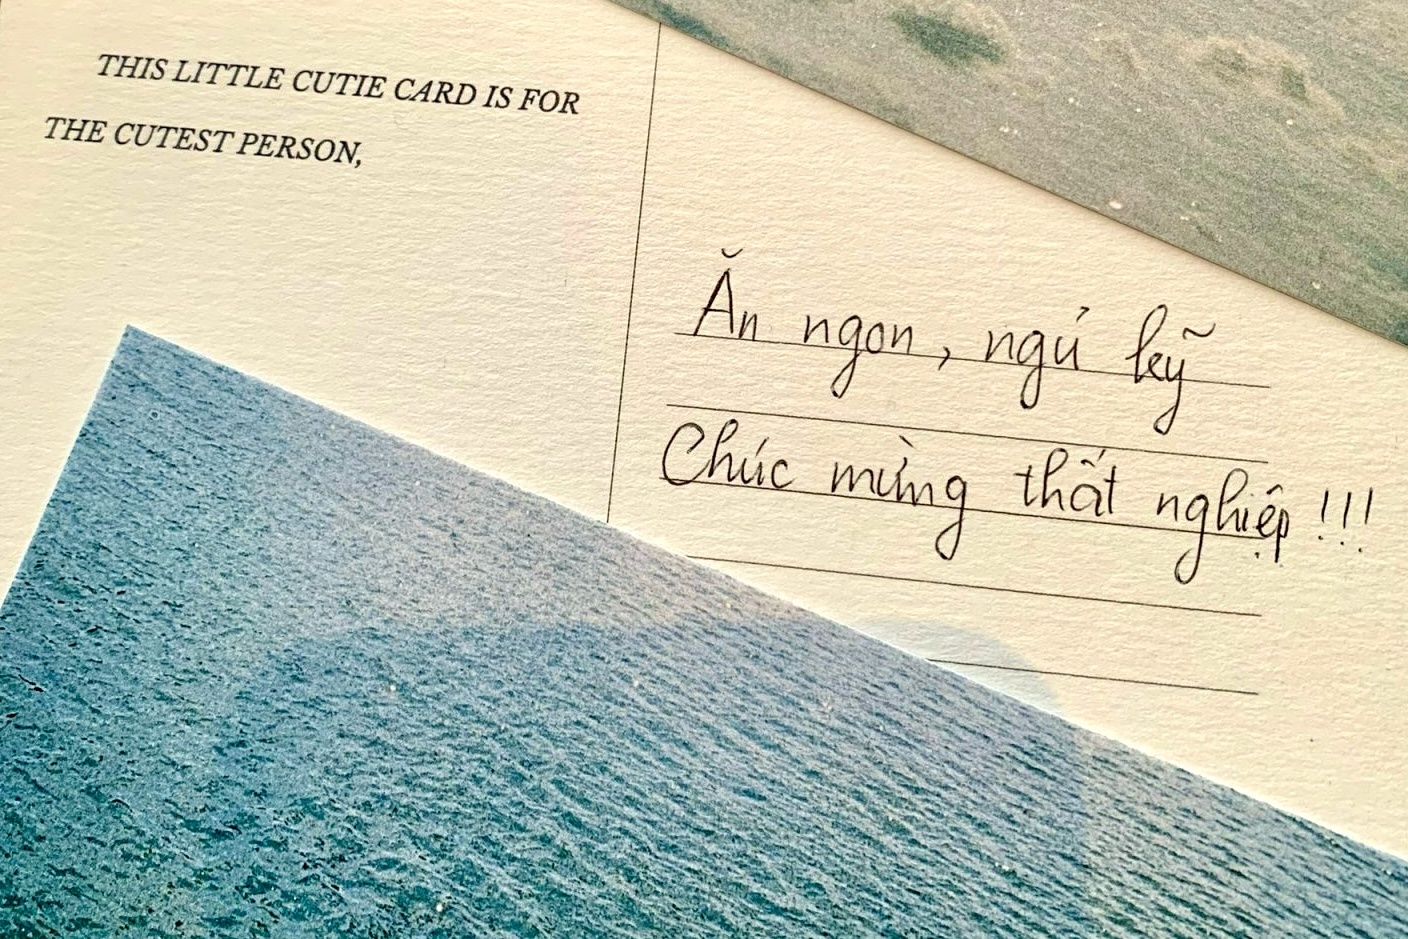 THIS LITTLE CUTIE CARD IS FOR
THE CUTEST PERSON,
Ăn ngon, ngủ kỹ
Chúc mừng thất nghiệp !!!